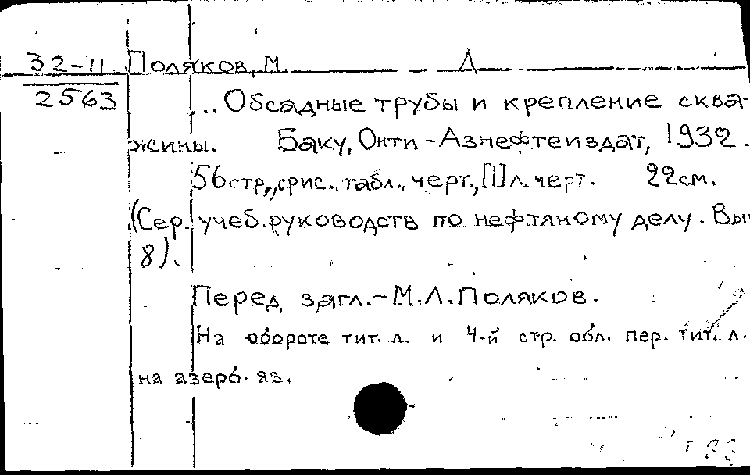 32-11 Поляков, М. Л
2563 ... Обсадные трубы и крепление сква-
жины. Баку, Онти-Азнефтеиздат, 1932.
56 стр., с рис., табл., черт., [1] л. черт. 22 см.
(Сер. учеб. руководств по нефтяному делу. Вып
8).
Перед загл.-М.Л.Поляков.
На обороте тит. л. и 4-й стр. обл. пер. тит. л.
на азерб. яз.